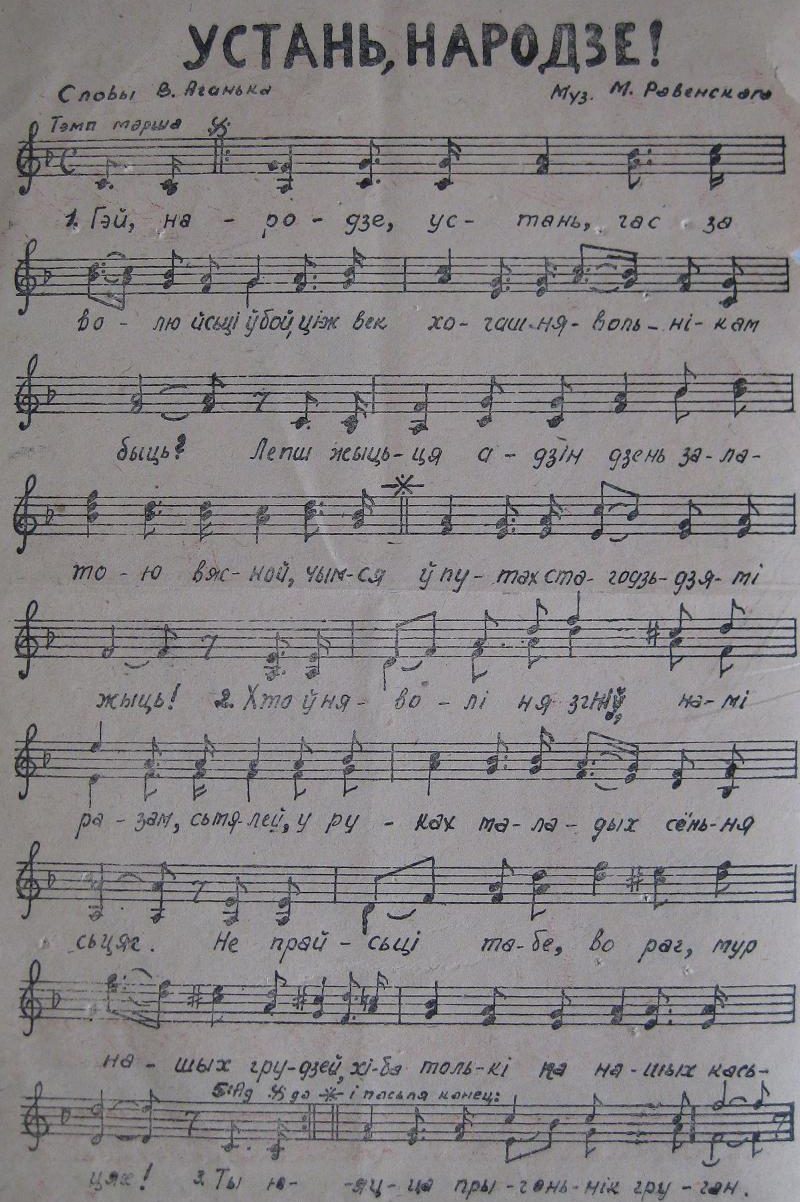 УСТАНЬ, НАРОДЗЕ!
Словы В. Аганька
Муз. М. Равенскага
Тэмп марша
1. Гэй, на - ро - дзе, ус - тань, час за
во - лю йсьці ў бой, ціж век хо - чаш ня - воль - ні - кам
быць? Лепш жыць - ця а - дзін дзень за - ла -
то - ю вяс - ной, чым - ся ў пу - тах ста - годзь - дзя - мі
жыць! 2. Хто ў ня - во - лі ня згніў, на - мі
ра - зам, сьця - лей, у ру - ках ма - ла - дых сёнь - ня
сьцяг. Не прай - сьці та - бе, во раг, мур
на - шых гру - дзей, хі - ба толь - кі па на - шых кась -
Ад да і пасьля канец:
цях! 3. Ты ю - - яц - ца пры - гонь - нік гру - ган.